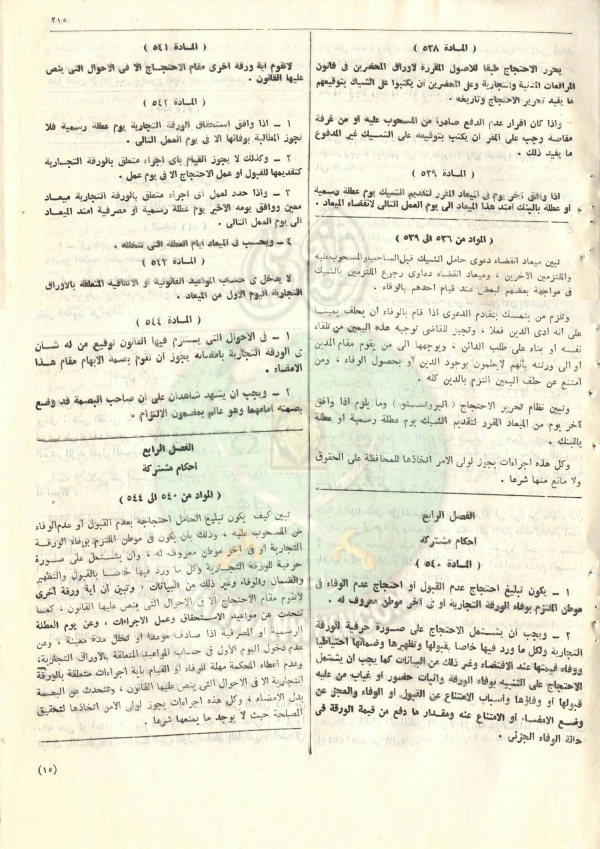 ٢١٥
( المادة ٥٣٨ )
يحرر الاحتجاج طبقا للاصول المقررة لاوراق المحضرين فى قانون
المرافعات المدنية والتجارية وعلى المحضرين أن يكتبوا على الشيك بتوقيعهم
ما يفيد تحرير الاحتجاج وتاريخه .
واذا كان اقرار عدم الدفع صادرة من المسحوب عليه أو من غرفة
مقاصة وجب على المقر أن يكتب بتوقيعه على الشيك غير المدفوع
ما يفيد ذلك .
( المادة ٥٣٩ )
اذا وافق آخر يوم فى الميعاد المقرر لتقديم الشيك يوم عطلة رسمية
أو عطلة بالبنك امتد هذا الميعاد الى يوم العمل التالى لانقضاء الميعاد .
( المواد من ٥٣٦ الى ٥٣٩ )
تبين ميعاد انقضاء دعوى حامل الشيك قبل الساحب والمسحوب عليه
والملتزمين الآخرين ، وميعاد انقضاء دعاوى رجوع الملتزمين بالشيك
فى مواجهة بعضهم لبعض عند قيام أحدهم بالوفاء .
وتلزم من يتمسك بتقادم الدعوى اذا قام بالوفاء أن يحلف يمينا
على أنه أدى الدين فعلا ، وتجيز للقاضى توجيه هذه اليمين من تلقاء
نفسه أو بناء على طلب الدائن ، ويوجهها الى من يقوم مقام المدين
أو الى ورثته بأنهم لايعلمون بوجود الدين أو بحصول الوفاء ، ومن
امتنع عن حلف اليمين التزم بالدين كله .
وتبين نظام تحرير الاحتجاج ( البروتستو ) وما يلزم اذا وافق
آخر يوم من الميعاد المقرر لتقديم الشيك يوم عطلة رسمية أو عطلة
بالبنك .
وكل هذه اجراءات يجوز لولى الامر اتخاذها للمحافظة على الحقوق
ولا مانع منها شرعا .
الفصل الرابع
أحكام مشتركة
( المادة ٥٤٠ )
١ – يكون تبليغ احتجاج عدم القبول أو احتجاج عدم الوفاء فى
موطن الملتزم بوفاء الورقة التجارية أو فى آخر موطن معروف له .
٢ – ويجب أن يشتمل الاحتجاج على صورة حرفية للورقة
التجارية ولكل ما ورد فيها خاصا بقبولها وتظهيرها وضمانها احتياطيا
ووفاء قيمتها عند الاقتضاء وغير ذلك من البيانات كما يجب أن يشتمل
الاحتجاج على التنبيه بوفاء الورقة واثبات حضور أو غياب من عليه
قبولها أو وفاؤها وأسباب الامتناع عن القبول أو الوفاء والعجز عن
وضع الامضاء أو الامتناع عنه ومقدار ما دفع من قيمة الورقة فى
حالة الوفاء الجزئى .
( المادة ٥٤١ )
لاتقوم أية ورقة أخرى مقام الاحتجاج الا فى الاحوال التى ينص
عليها القانون .
( المادة ٥٤٢ )
١ – اذا وافق استحقاق الورقة التجارية يوم عطلة رسمية فلا
تجوز المطالبة بوفائها الا فى يوم العمل التالى .
٢ – وكذلك لا يجوز القيام بأى اجراء متعلق بالورقة التجارية
كتقديمها للقبول أو عمل الاحتجاج الا فى يوم عمل .
٣ – واذا حدد لعمل أى اجراء متعلق بالورقة التجارية ميعاد
معين ووافق يومه الأخير يوم عطلة رسمية أو مصرفية امتد الميعاد
الى يوم العمل التالى .
٤ – ويحسب فى الميعاد أيام العطلة التى تتخلله .
( المادة ٥٤٣ )
لا يدخل فى حساب المواعيد القانونية أو الاتفاقية المتعلقة بالأوراق
التجارية اليوم الأول من الميعاد .
( المادة ٥٤٤ )
١ – فى الأحوال التى يستلزم فيها القانون توقيع من له شأن
فى الورقة التجارية بامضائه يجوز أن تقوم بصمة الابهام مقام هذا
الامضاء .
٢ – ويجب أن يشهد شاهدان على أن صاحب البصمة قد وضع
بصمته أمامهما وهو عالم بمضمون الالتزام .
الفصل الرابع
أحكام مشتركة
( المواد من ٥٤٠ الى ٥٤٤ )
تبين كيف يكون تبليغ الحامل احتجاجه بعدم القبول أو عدم الوفاء
من المسحوب عليه ، وذلك بأن يكون فى موطن الملتزم بوفاء الورقة
التجارية أو فى آخر موطن معروف له ، وأن يشتمل على صورة
حرفية للورقة التجارية وكل ما ورد فيها خاصا بالقبول والتظهير
والضمان والوفاء وغير ذلك من البيانات ، وتبين أن أية ورقة أخرى
لاتقوم مقام الاحتجاج الا فى الاحوال التى ينص عليها القانون ، كما
تتحدث عن مواعيد الاستحقاق وعمل الاجراءات ، وعن يوم العطلة
الرسمية أو المصرفية اذا صادف موعدا أو تخلل مدة معينة ، وعن
عدم دخول اليوم الأول فى حساب المواعيد المتعلقة بالأوراق التجارية،
وعدم اعطاء المحكمة مهلة للوفاء أو القيام بأية اجراءات متعلقة بالورقة
التجارية الا فى الاحوال التى ينص عليها القانون ، وتتحدث عن البصمة
بدل الامضاء ، وكل هذه اجراءات يجوز لولى الامر اتخاذها لتحقيق
المصلحة حيث لا يوجد ما يمنعها شرعا .
(١٥)